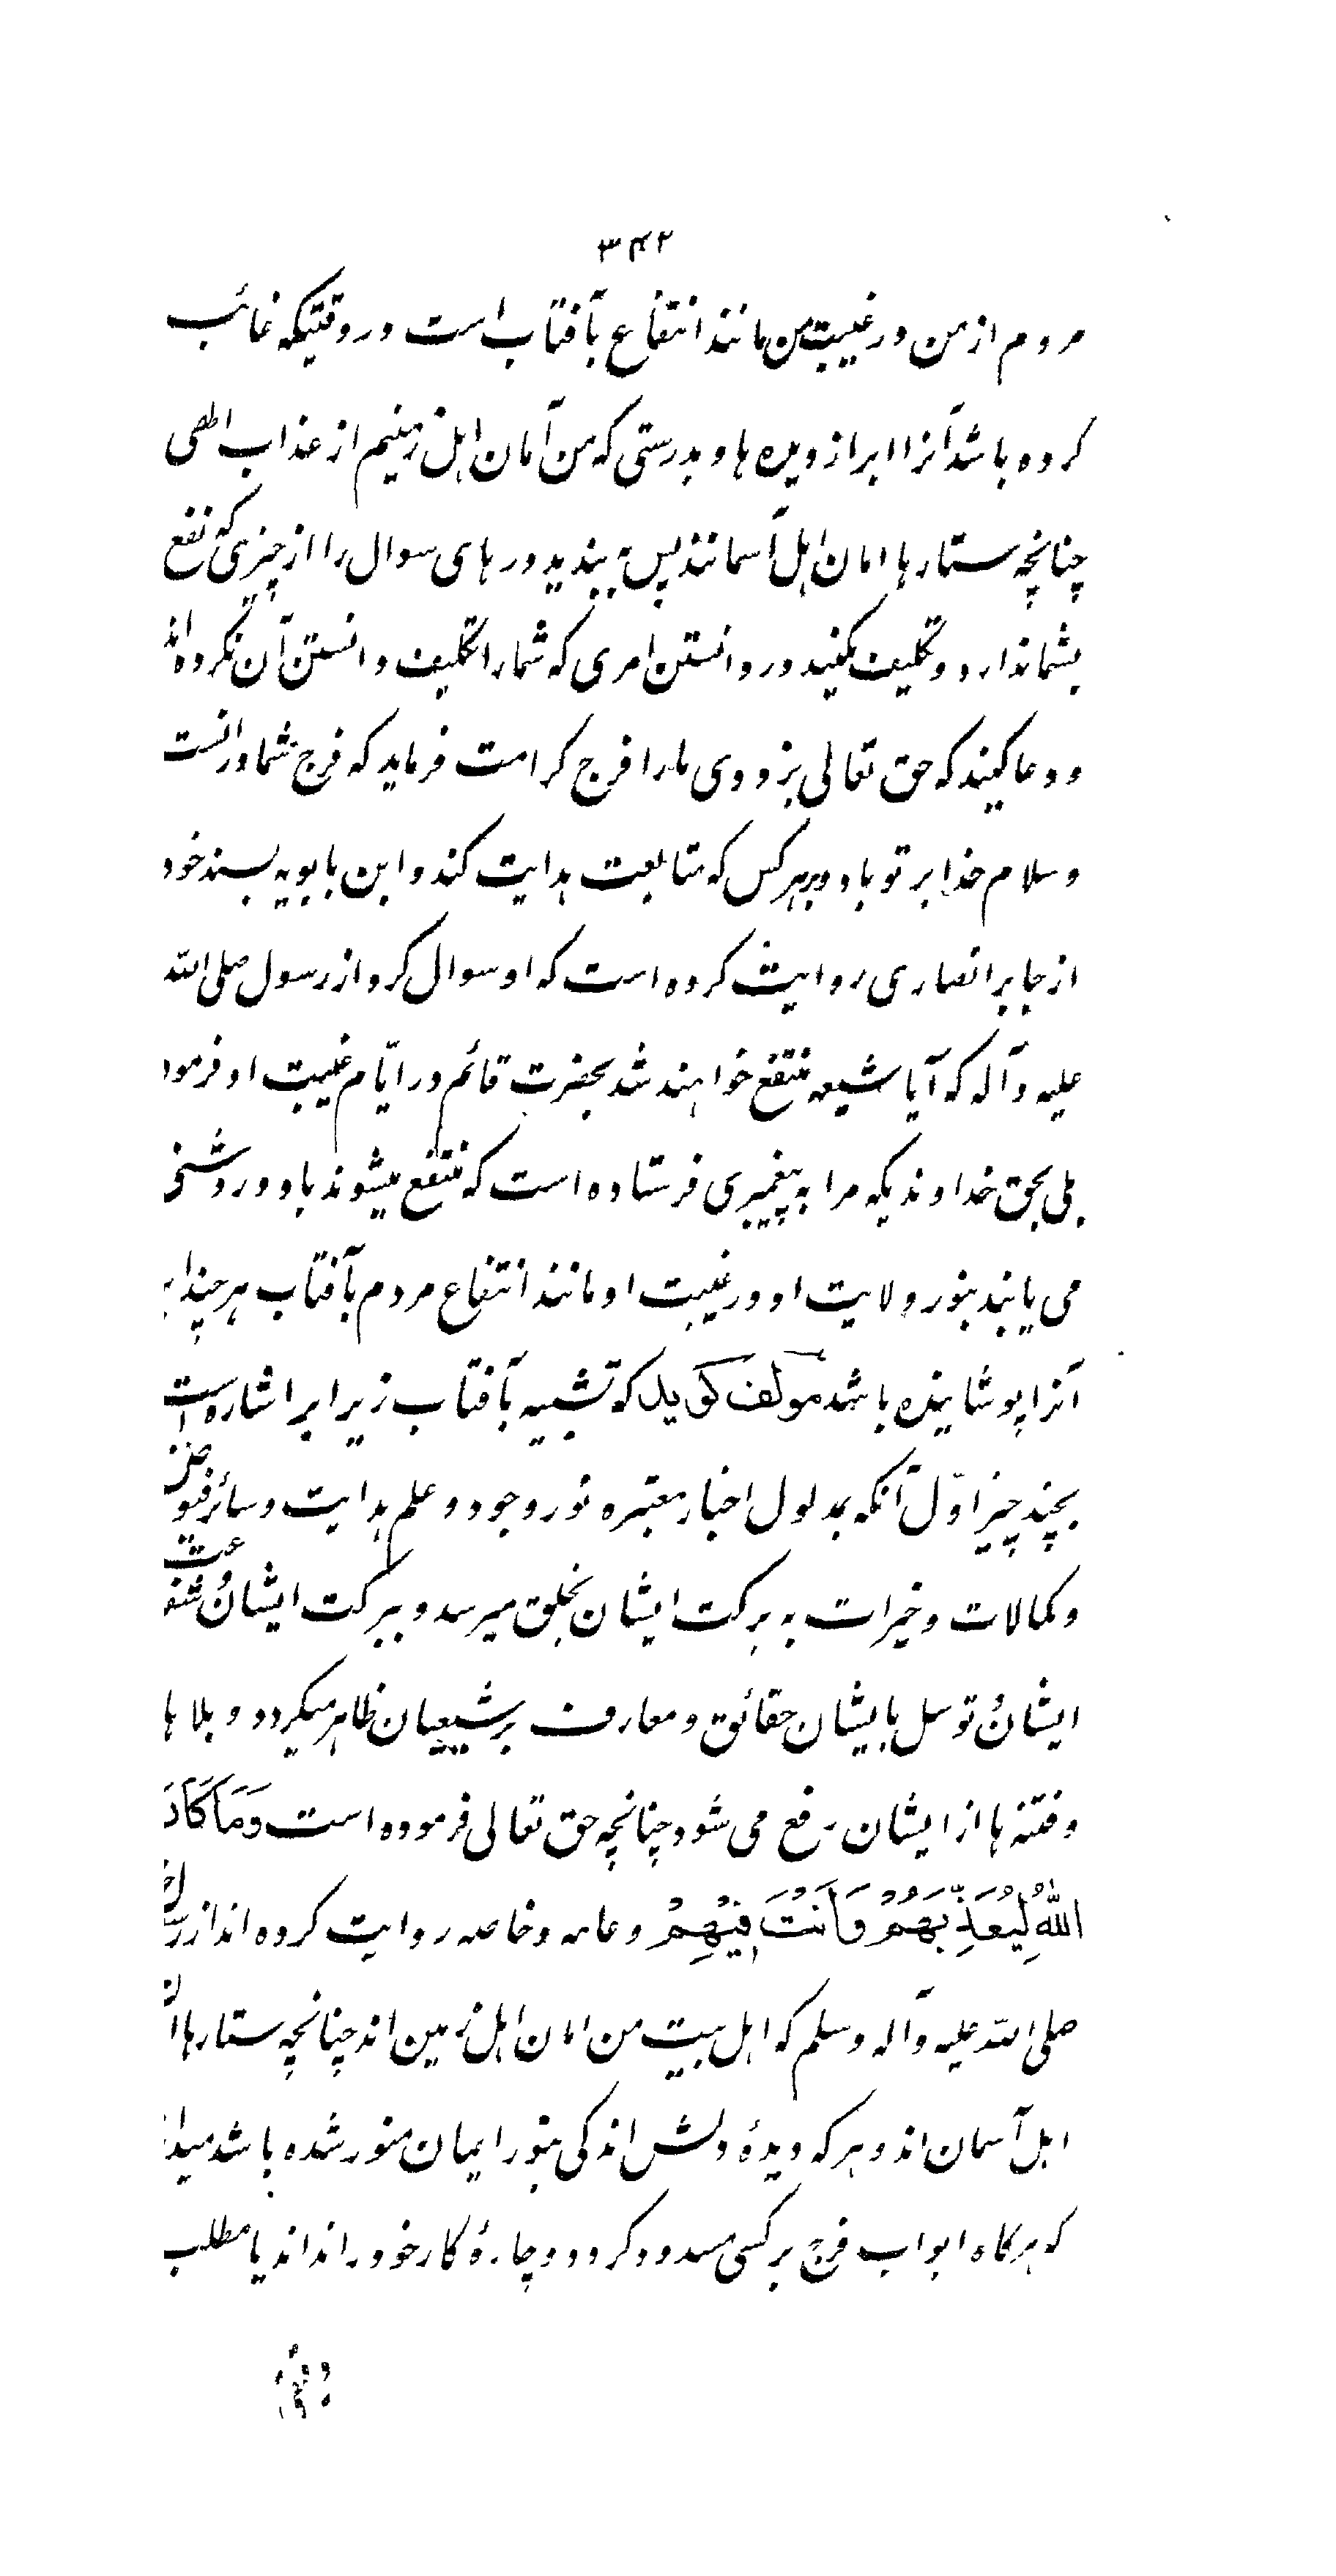 ۳۴۲
مردم از من در غیبت من مانند انتفاع بآفتاب است در وقتیکه غائب
کرده باشد آنرا ابر از دیده ها و بدرستی که من آمان اهل زمینم از عذاب الهی
چنانچه ستارها امان اهل آسمانند پس به بندید درهای سوال را از چیزی که نفع
بشما ندارد و تکلیف مکنید در دانستن امری که شما را تکلیف دانستن آن نکرده اند
و دعا کنید که حق تعالی بزودی ما را فرج کرامت فرماید که فرج شما در انست
و سلام خدا بر تو باد و بر هر کس که متابعت هدایت کند و ابن بابویه بسند خود
از جابر انصاری روایت کرده است که او سوال کرد از رسول صلی الله
علیه و آله که آیا شیعه منتفع خواهند شد بحضرت قائم در ایّام غیبت او فرمود
بلی بحق خداوندیکه مرا به پیغمبری فرستاده است که منتفع میشوند باو و روشنی
می یابند بنور ولایت او در غیبت او مانند انتفاع مردم بآفتاب هر چند ابر
آنرا پوشانیده باشد مولف گوید که تشبیه بآفتاب زیر ابر اشاره است
بچند چیز اوّل آنکه بمدلول اخبار معتبره نور وجود و علم هدایت و سائر فیوض
و کمالات و خیرات به برکت ایشان بخلق میرسد و ببرکت ایشانُ شفاعت
ایشانُ توسل بایشان حقائق و معارف بر شیعیان ظاهر میگردد و بلاها
و فتنه ها از ایشان رفع می شود چنانچه حق تعالی فرموده است وَمَا كَانَ
اللّٰهُ لِيُعَذِّبَهُمْ وَاَنْتَ فِيْهِمْ و عامه و خاصه روایت کرده اند از رسول
صلی الله علیه و آله وسلم که اهل بیت من امان اهل زمین اند چنانچه ستارها امان
اهل آسمان اند و هر که دیدهٔ دلش اندکی بنور ایمان منور شده باشد میداند
که هرگاه ابواب فرج بر کسی مسدود گردد و چارهٔ کار خود را نداند یا مطلب